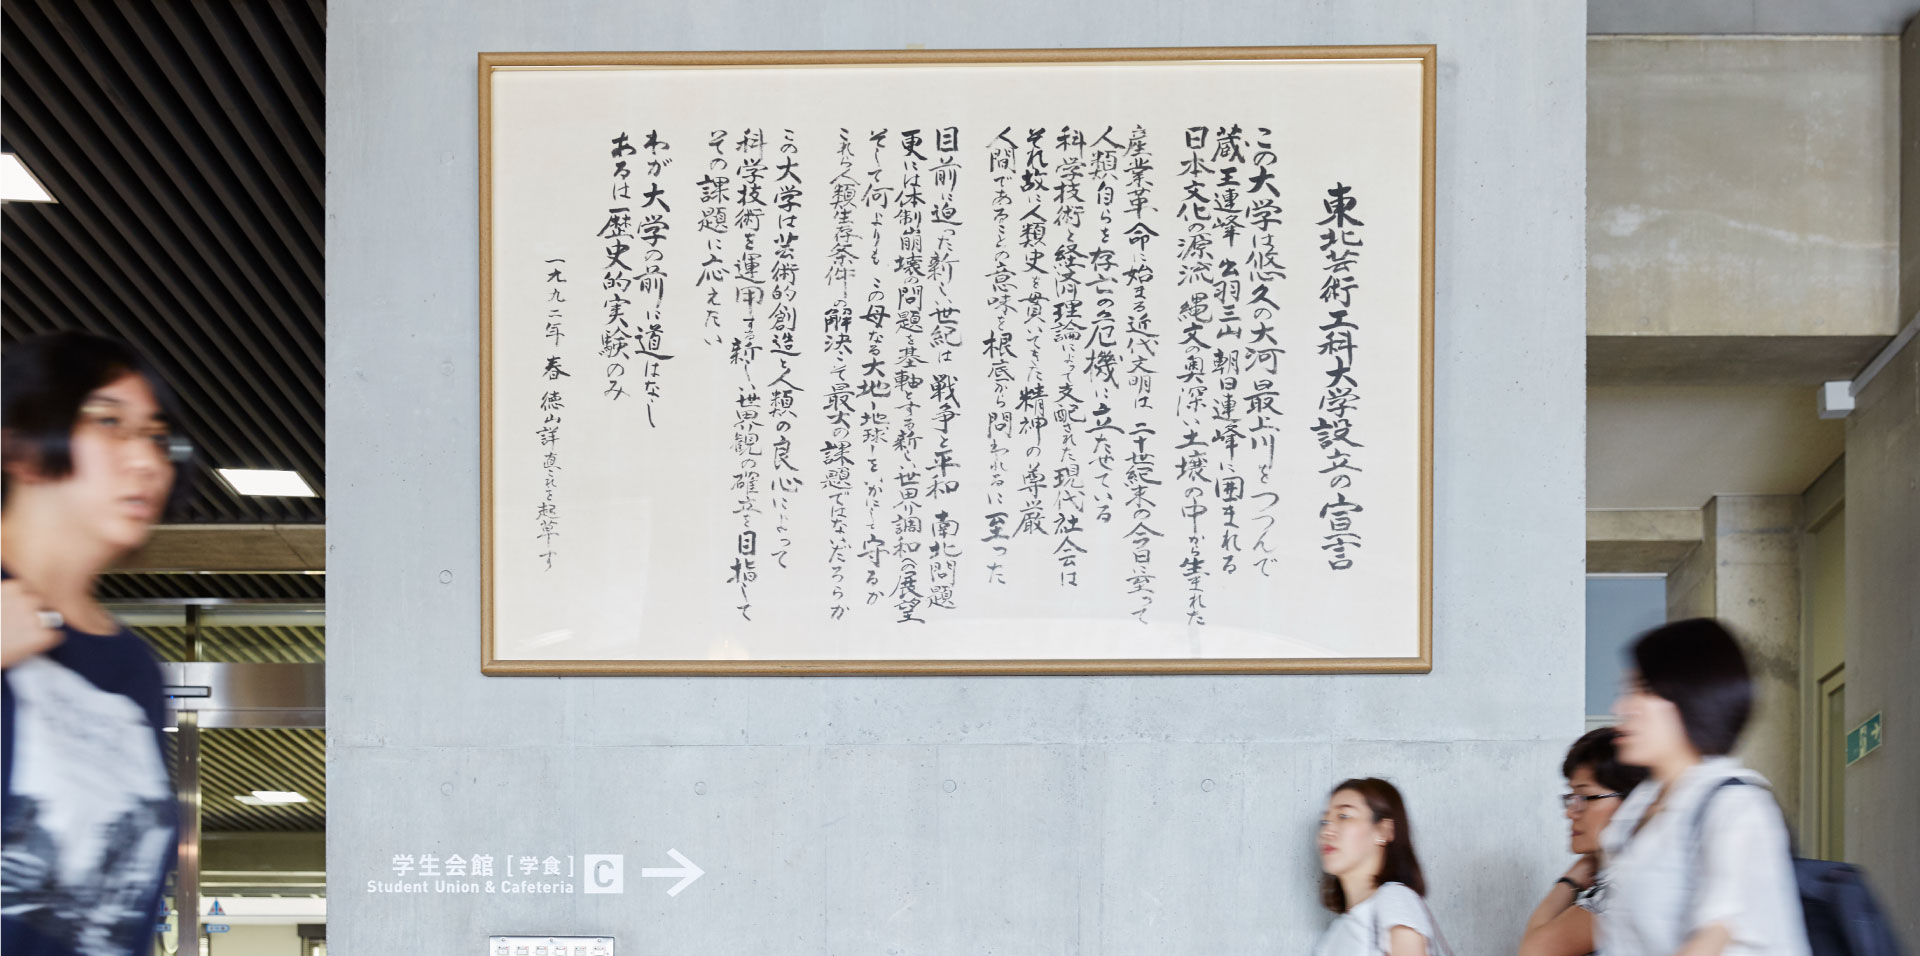 東北芸術工科大学設立の宣言
この大学は悠久の大河 最上川をつつんで
蔵王連峰 出羽三山 朝日連峰に囲まれる
日本文化の源流 縄文の奥深い土壌の中から生まれた
産業革命に始まる近代文明は 二十世紀末の今日に至って
人類自らを存亡の危機に立たせている
科学技術と経済理論によって支配された現代社会は
それ故に人類史を貫いてきた精神の尊厳
人間であることの意味を根底から問われるに至った
目前に迫った新しい世紀は 戦争と平和 南北問題
更には体制崩壊の問題を基軸とする新しい世界調和への展望
そして何よりも この母なる大地−地球−をいかにして守るか
これら人類生存条件の解決こそ最大の課題ではないだろうか
この大学は芸術的創造と人類の良心によって
科学技術を運用する新しい世界観の確立を目指して
その課題に応えたい
わが大学の前に道はなし
あるは歴史的実験のみ
一九九二年 春 徳山詳直これを起草す
学生会館 [学食] C
Student Union & Cafeteria